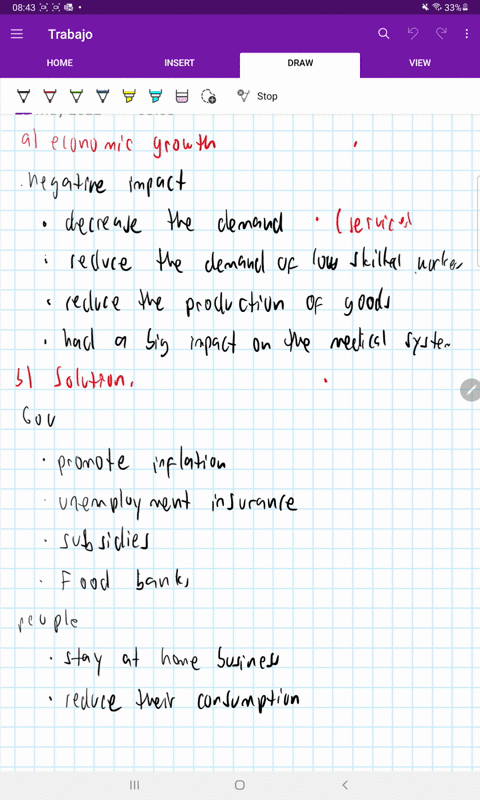 08:43 33%
Trabajo
HOME INSERT DRAW VIEW
Stop
a) economic growth
negative impact
• decrease the demand • (services
• reduce the demand of low skilled worker
• reduce the production of goods
• had a big impact on the medical system
b) Solution.
Gov
• promote inflation
• unemployment insurance
• subsidies
• Food banks
people
• stay at home business
• reduce their consumption